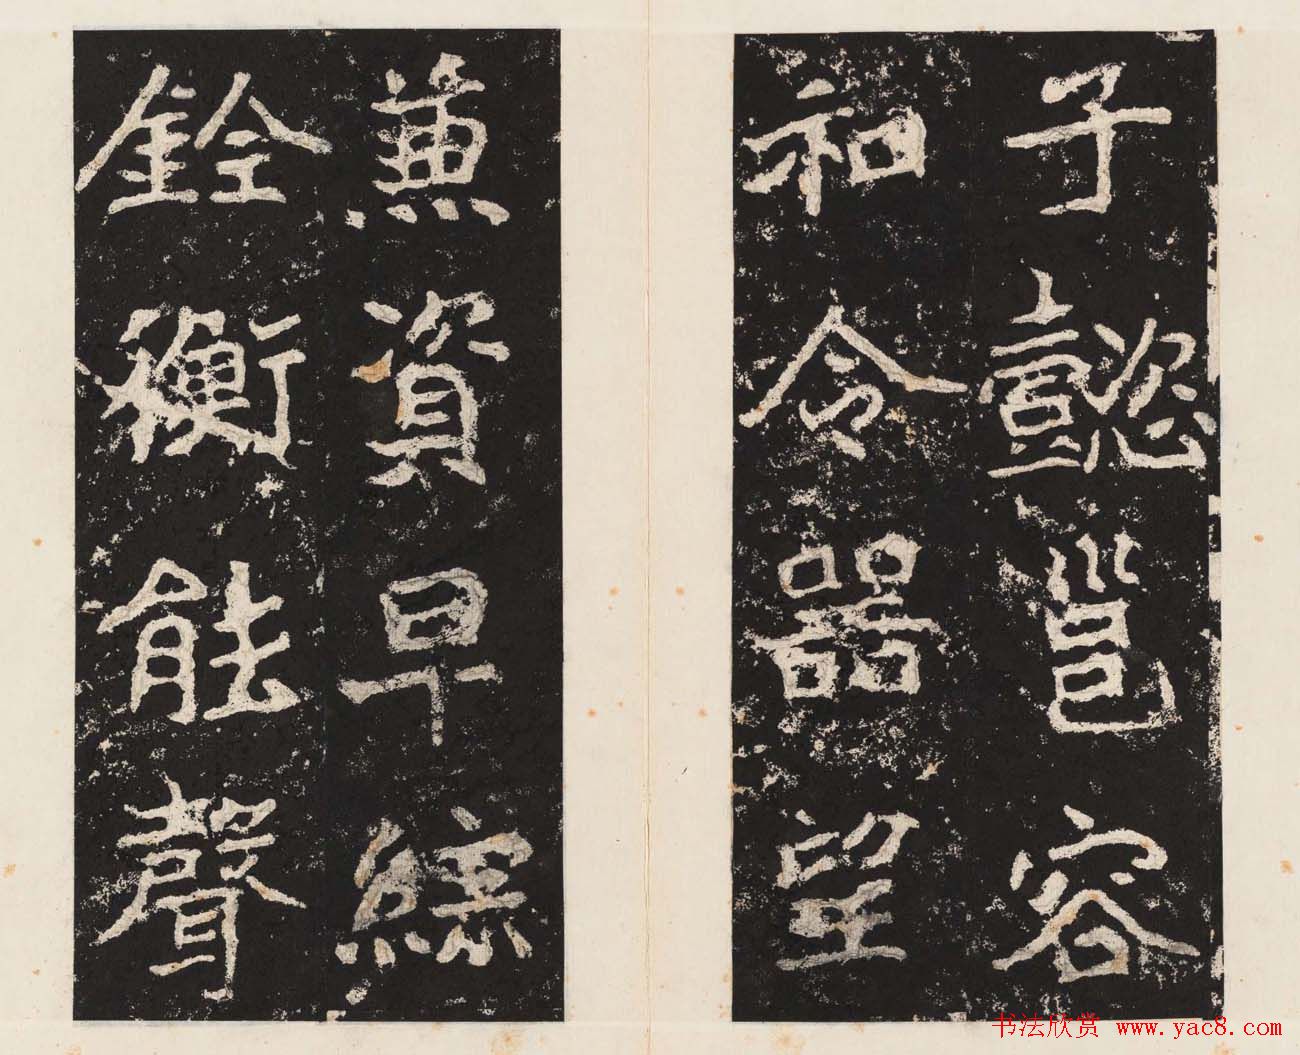 子懿邕容
和令器望
兼資早綜
銓衡能聲
书法欣赏 www.yac8.com